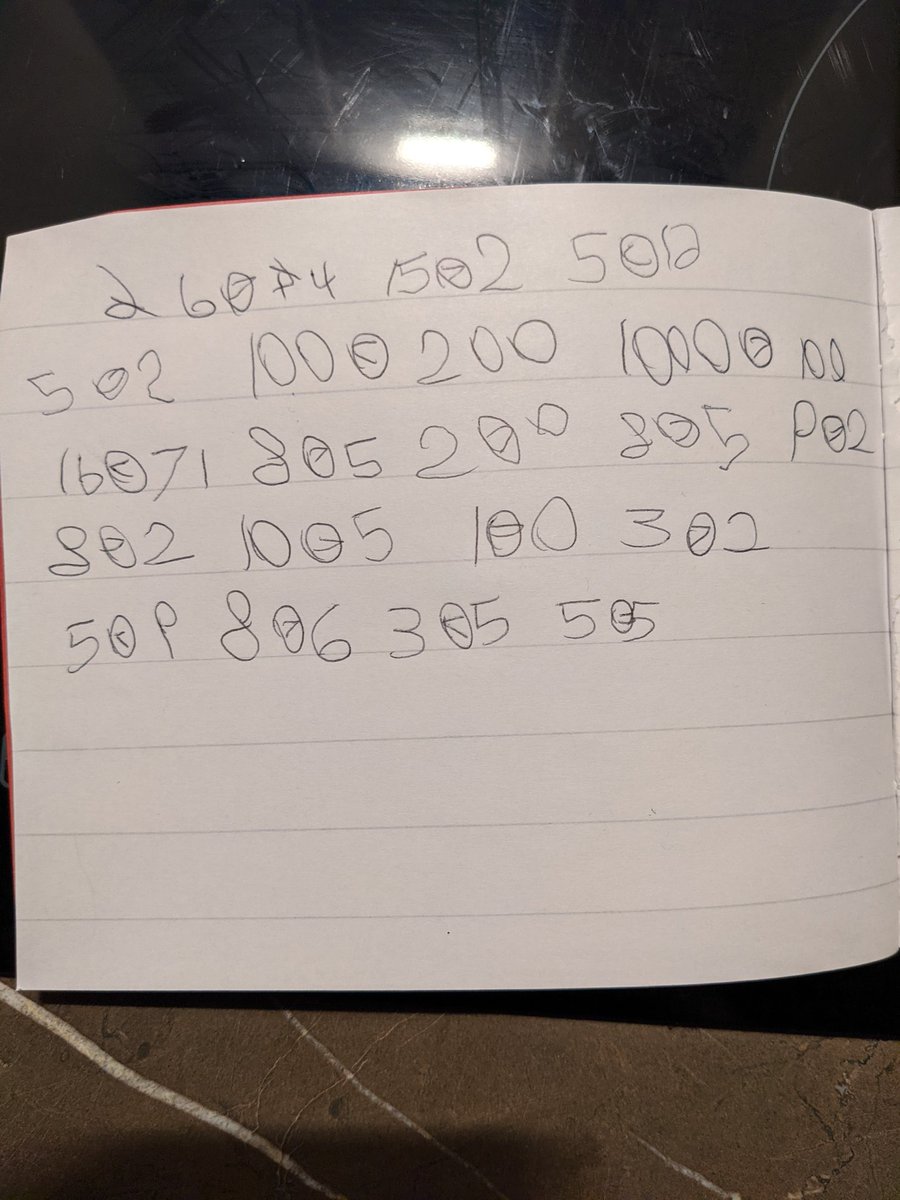 1502 50
502 1000 200 10000 100
16071 805 200 805 P02
802 1005 100 302
50P 806 305 505